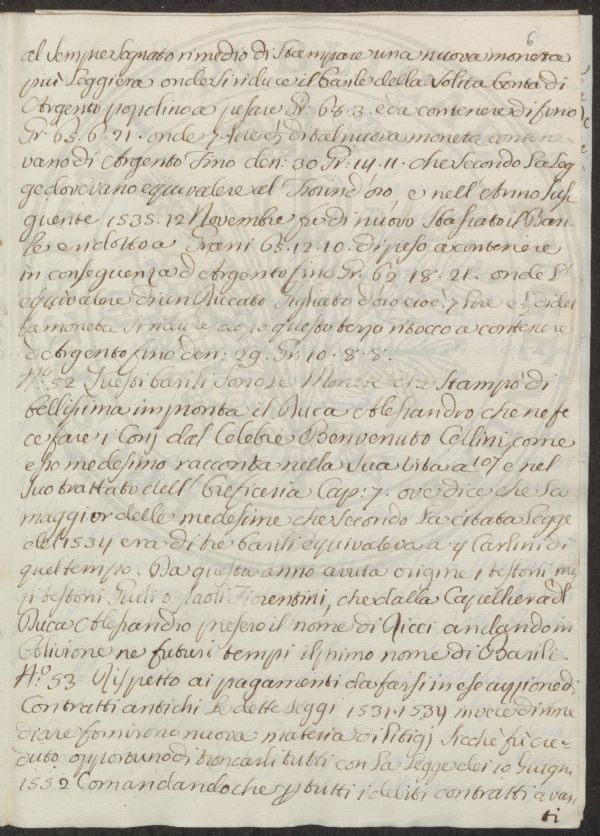 6
al sempre sognato rimedio di stampare una nuova moneta
più leggiera onde si riduce il barile della solita bontà di
Argento popolino a pesare Gr: 68. 3. e da contenere di fino
Gr: 65. 6. 21. onde 7. lire e ½ di tal nuova moneta contene
vano di Argento fino den: 30 Gr: 14. 11. che secondo la leg
ge dovevano equivalere al Fiorin d'oro e nell'Anno sus
guente 1535. 12 Novembre fu di nuovo tastato il Bari
le e ridotto a Grani 65. 12. 10. di peso a contenere
in conseguenza d'Argento fino Gr: 62. 18. 21. onde l'
equivalere di un Ruccato Gigliato d'oro cioè 7 lire e ½ di det
ta moneta si riduce a questo terzo ritocco a contenere
d'Argento fino den: 29. Gr: 10. 8. 8.
N.o 52 Questi barili sono le Monete che stampò di
bellissima impronta il Duca Alessandro che ne fe
ce fare i Conj dal Celebre Benvenuto Cellini, come
esso medesimo racconta nella sua Vita a 107 e nel
suo trattato dell'Oreficeria Cap: 7. ove dice che la
maggior delle medesime che secondo la citata Legge
del 1534 era di tre barili equivaleva a 4 Carlini di
quel tempo. Da questa anno avuta origine i testoni mez
zi testoni Giuli o paoli Fiorentini, che dalla Capelliera del
Duca Alessandro presero il nome di Ricci andando in
Oblivione ne futuri tempi il primo nome di Barili.
N.o 53 Rispetto ai pagamenti da farsi in esecuzione di
Contratti antichi le dette Leggi 1531. 1534 invece di rime
diare fornirono nuova materia di litigj sicchè fù cre-
duto opportuno di troncarli tutti con la legge dei 10 Giugn.
1552 Comandando che p tutti i debiti contratti avan
ti